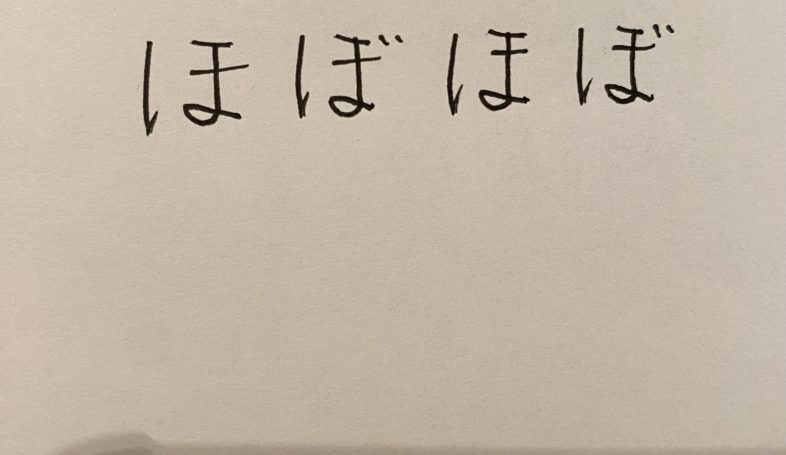 ほぼほぼ